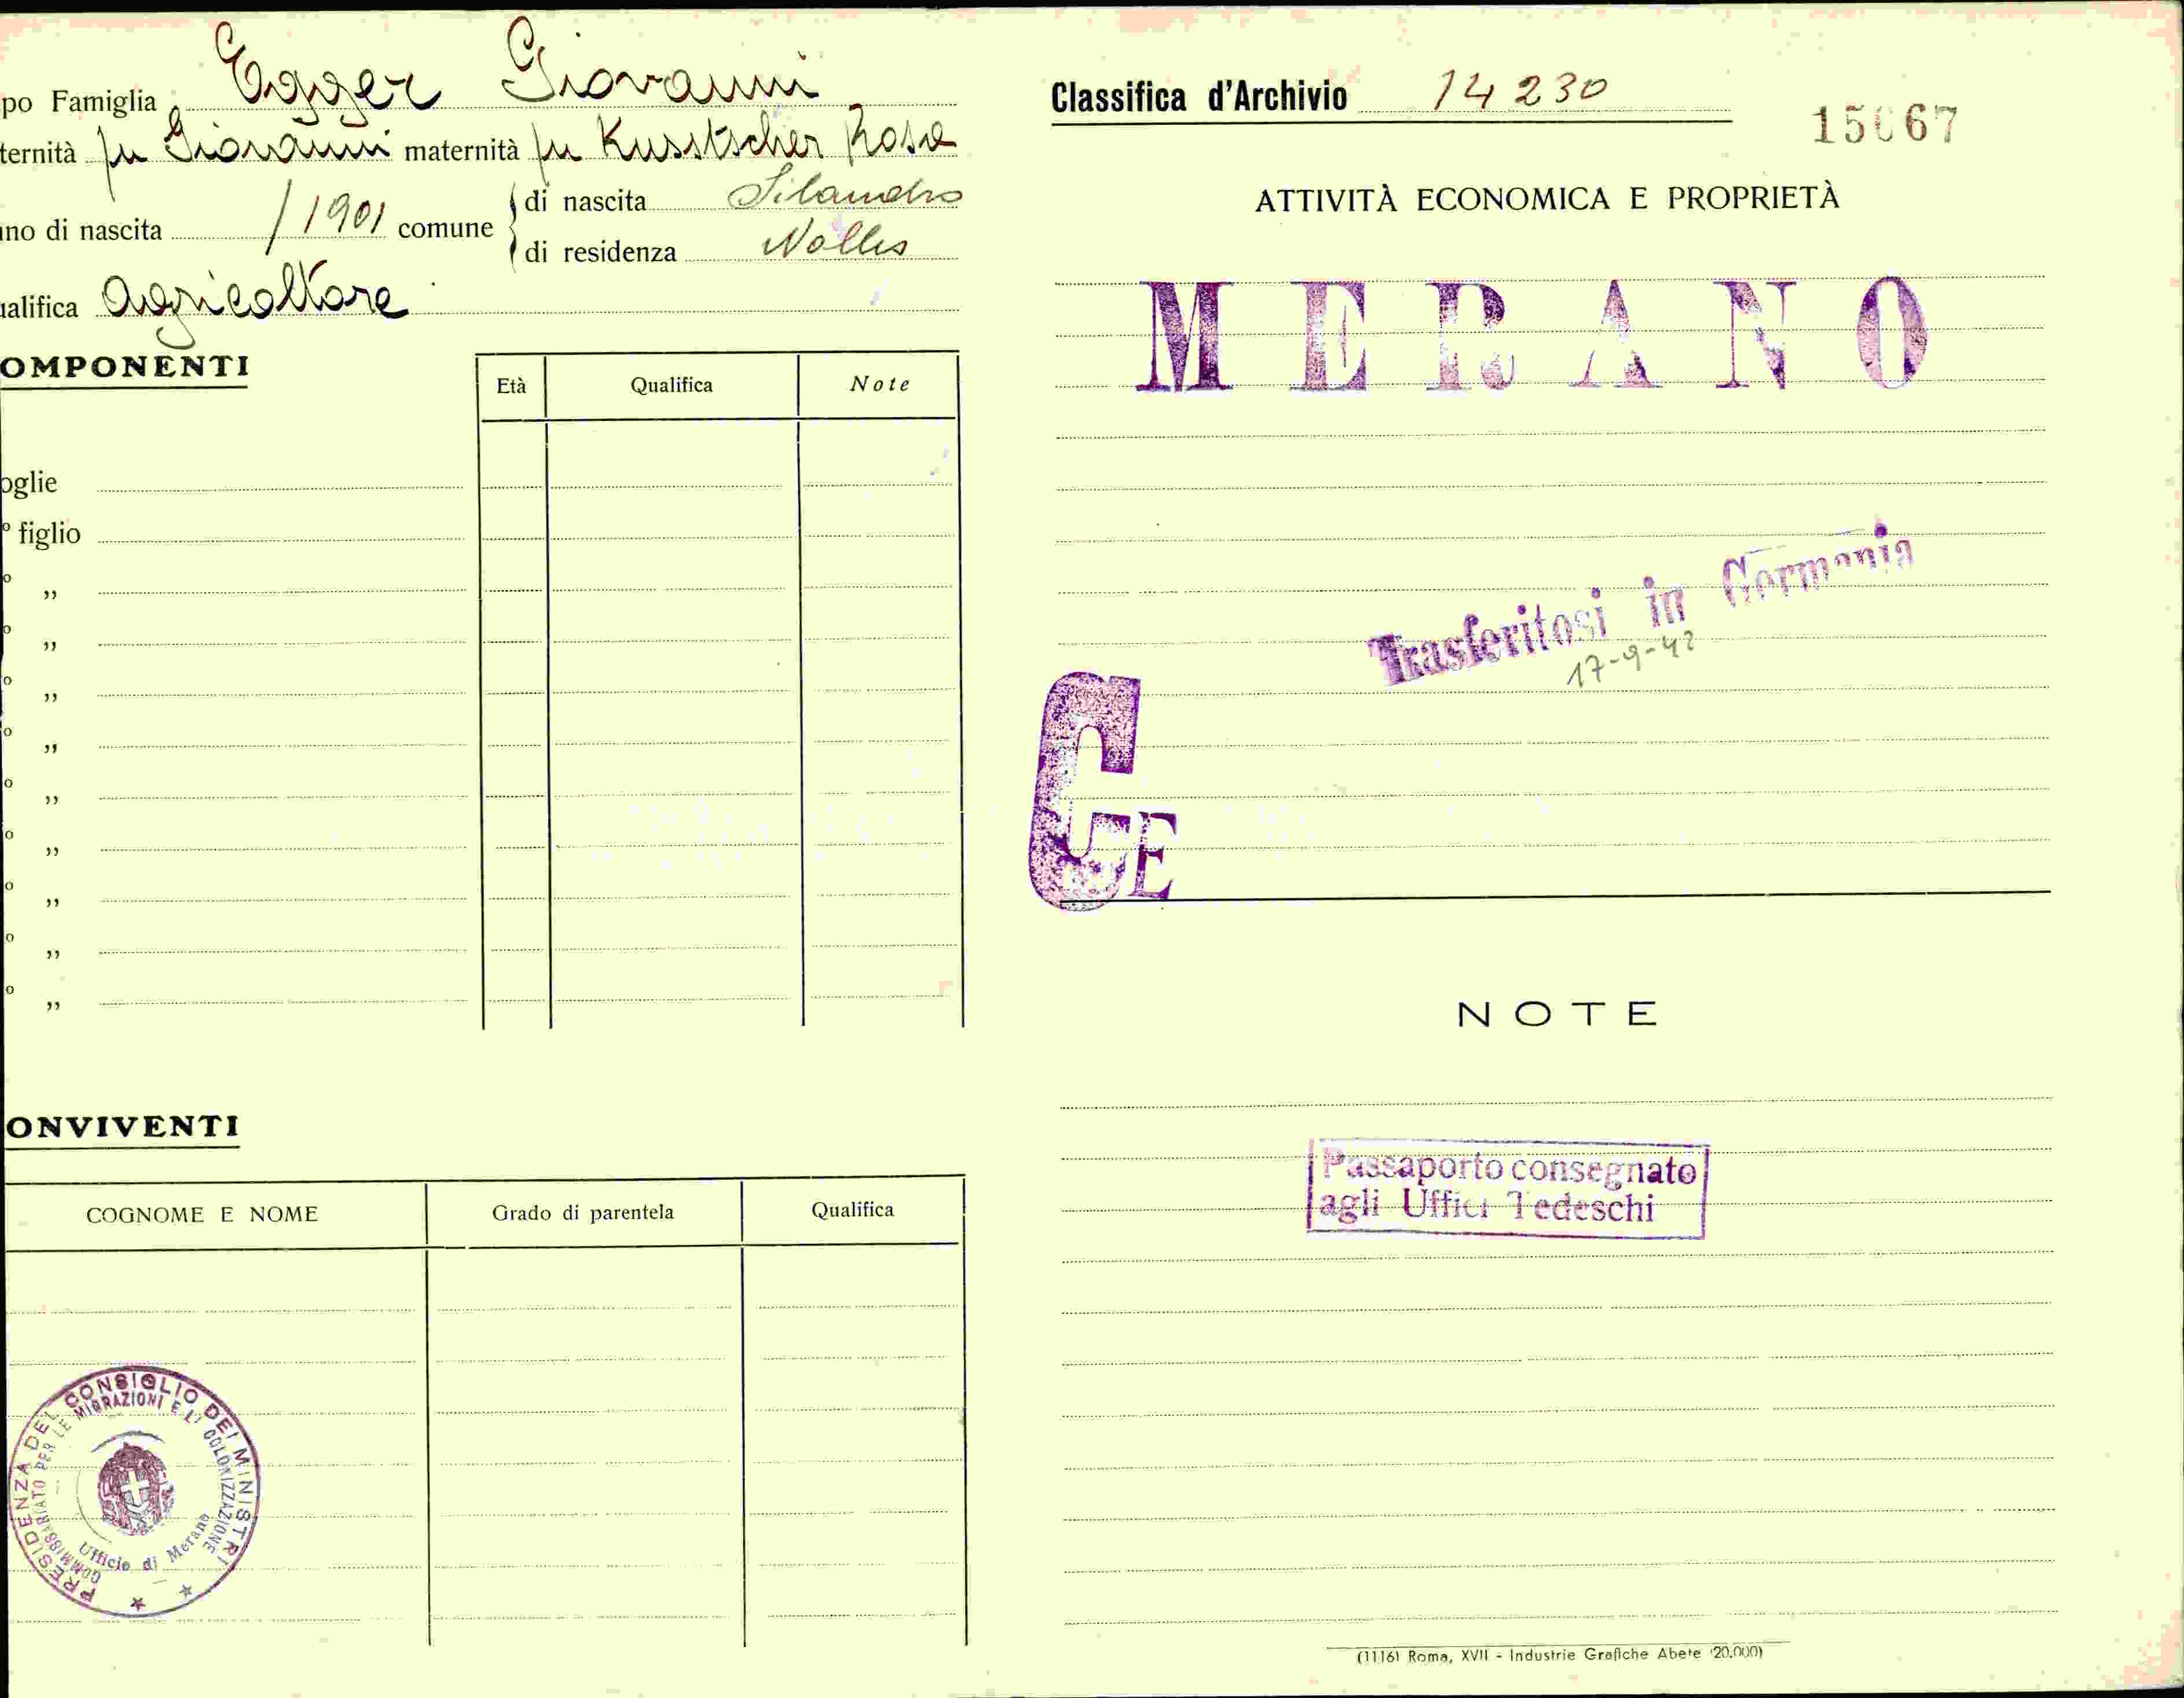 po Famiglia Egger Giovanni
ternità fu Giovanni maternità fu Kusstscher Rosa
no di nascita /1901 comune di nascita Silandro
di residenza Nalles
alifica agricoltore
OMPONENTI
Età Qualifica Note
oglie
° figlio
° „
° „
° „
° „
° „
° „
° „
° „
° „
ONVIVENTI
COGNOME E NOME Grado di parentela Qualifica
PRESIDENZA DEL CONSIGLIO DEI MINISTRI
COMMISSARIATO PER LE MIGRAZIONI E L' COLONIZZAZIONE
Ufficio di Merano
Classifica d'Archivio 14230
15067
ATTIVITÀ ECONOMICA E PROPRIETÀ
MERANO
Trasferitosi in Germania
17-9-42
GE
NOTE
Passaporto consegnato
agli Uffici Tedeschi
(1116) Roma, XVII - Industrie Grafiche Abete (20.000)